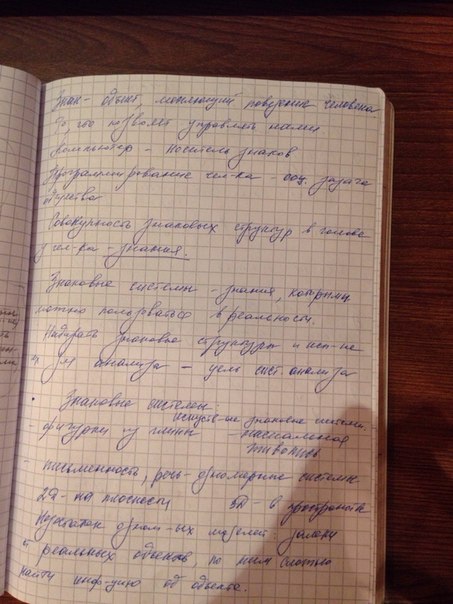 Знак - объект, меняющий поведение человека
То, что позволяет управлять нами
Компьютер - носитель знаков
Программирование чел-ка - соц. задача
общества
Совокупность знаковых структур в голове
у чел-ка - знания.
Знаковые системы - знания, которыми
можно пользоваться в реальности.
Набирать знаковые структуры и исп-ие
их для анализа - цель сист. анализа
Знаковые системы:
искусств-ые знаковые системы.
- фигурки из глины - наскальная
живопись
- письменность, речь - одномерные системы
2D - на плоскости 3D - в пространстве
Недостаток одном-ых моделей: далеки
от реальных объектов, по ним сложно
найти инф-цию об объекте.